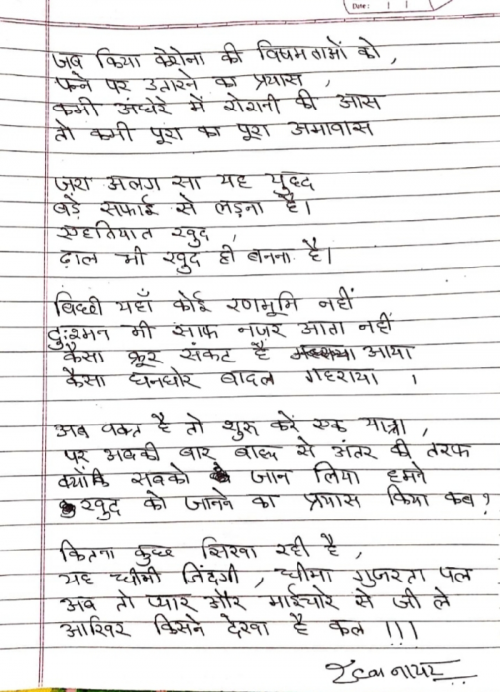 Date :
जब किया कोरोना की विषमताओं को ,
पन्ने पर उतारने का प्रयास ,
कभी अंधेरे में रोशनी की आस
तो कभी पूरा का पूरा अमावास
ज़रा अलग सा यह युद्ध
बड़े सफाई से लड़ना है।
एहतियात खुद ,
ढाल भी खुद ही बनना है।
बिछी यहाँ कोई रणभूमि नहीं
दुःश्मन भी साफ नजर आता नहीं
कैसा क्रूर संकट है आया
कैसा घनघोर बादल गहराया ।
अब वक्त है तो शुरु करें एक यात्रा ,
पर अबकी बार बाह्य से अंतर की तरफ
क्योंकि सबको जान लिया हमने
खुद को जानने का प्रयास किया कब ?
कितना कुछ सिखा रही है ,
यह धीमी ज़िंदगी , धीमा गुजरता पल
अब तो प्यार और भाईचारे से जी ले
आखिर किसने देखा है कल !!!
नायर